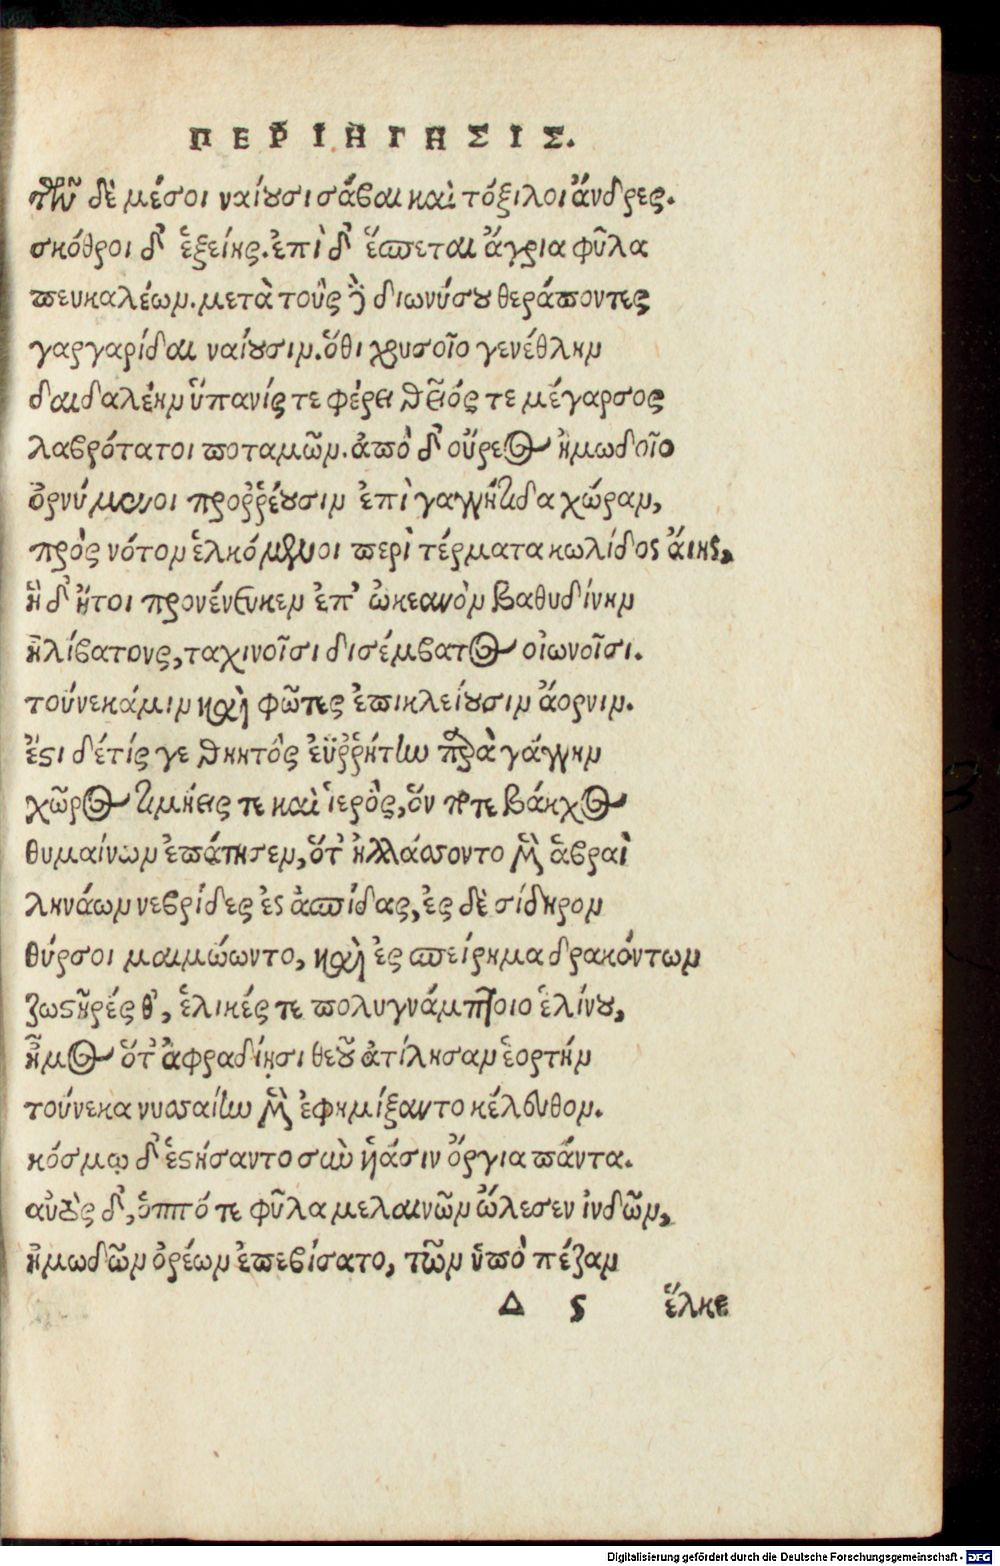 ΠΕΡΙΗΓΗΣΙΣ.
τῶν δὲ μέσοι ναίουσι σάβαι καὶ τόξιλοι ἄνδρες.
σκόθροι δ' ἑξείης. ἐπὶ δ' ἕσπεται ἄγρια φῦλα
πευκαλέων. μετὰ τοὺς δὲ διωνύσου θεράποντες
γαργαρίδαι ναίουσιν. ὅθι χρυσοῖο γενέθλην
δαιδαλέην ὕπανίς τε φέρει θεῖός τε μέγαρσος
λαβρότατοι ποταμῶν. ἀπὸ δ' οὔρεος ἠμωδοῖο
ὀρνύμενοι προῤῥέουσιν ἐπὶ γαγγήτιδα χώραν,
πρὸς νότον ἑλκόμενοι περὶ τέρματα κωλίδος ἄιης,
ἣ δ' ἤτοι προνένευκεν ἐπ' ὠκεανὸν βαθυδίνην
ἠλίβατους, ταχινοῖσι δισέμβατος οἰωνοῖσι.
τούνεκά μιν καὶ φῶτες ἐπικλείουσιν ἄορνιν.
ἔστι δέ τίς γε θηητὸς ἐϋῤῥήτην παρὰ γάγγην
χῶρος τιμήεις τε καὶ ἱερὸς, ὅν ποτε βάκχος
θυμαίνων ἐπάτησεν, ὅτ' ἠλλάσσοντο μὲν ἁβραὶ
ληνάων νεβρίδες ἐς ἀσπίδας, ἐς δὲ σίδηρον
θύρσοι μαιμώωντο, καὶ ἐς σπείρημα δρακόντων
ζωστῆρές θ', ἑλικές τε πολυγνάμπτοιο ἑλίνου,
ἦμος ὅτ' ἀφραδίῃσι θεοῦ ἀτίλησαν ἑορτήν
τούνεκα νυσσαίην μὲν ἐφημίξαντο κέλευθον.
κόσμῳ δ' ἐστήσαντο σὺν ἡάσιν ὄργια πάντα.
αὐτὸς δ', ὁππότε φῦλα μελαινῶν ὤλεσεν ἰνδῶν,
ἠμωδῶν ὀρέων ἐπεβίσατο, τῶν ὑπὸ πέζαν
Δ 5 ἕλκε
Digitalisierung gefördert durch die Deutsche Forschungsgemeinschaft - DFG